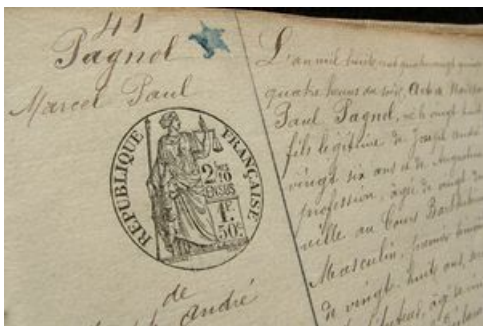 41
Pagnol
Marcel Paul
RÉPUBLIQUE FRANÇAISE
2/10
EN SUS
1F.
50c.
de
André
L'an mil huit cent quatre vingt quinze
quatre heures du soir, Acte de Naissance
Paul Pagnol, né le vingt huit
fils légitime de Joseph André
vingt six ans et de Augustine
profession, âgée de vingt deux
ville au Cours Barthélemy
Masculin, premier témoin
de vingt huit ans,